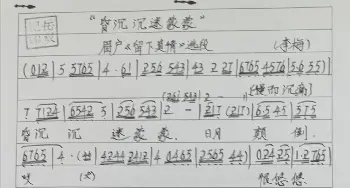 "昏沉沉迷蒙蒙"
眉户《留下真情》选段 (李梅)
(0 1 2 | 5 5765 | 4 · 61 | 256 543 | 43 2 27 | 6765 4576 | 5·6 55 ) |
7 7124 | 6542 5 | 256 543 | 2 - | 217 (217) | 6·545 | 575
昏沉 沉 迷蒙蒙 日月 颠倒.
6765 | 4 · | 4244 2412 | 4 0465 | 2565 44) | 024 25 | 1·2765 |
哎 恨悠悠